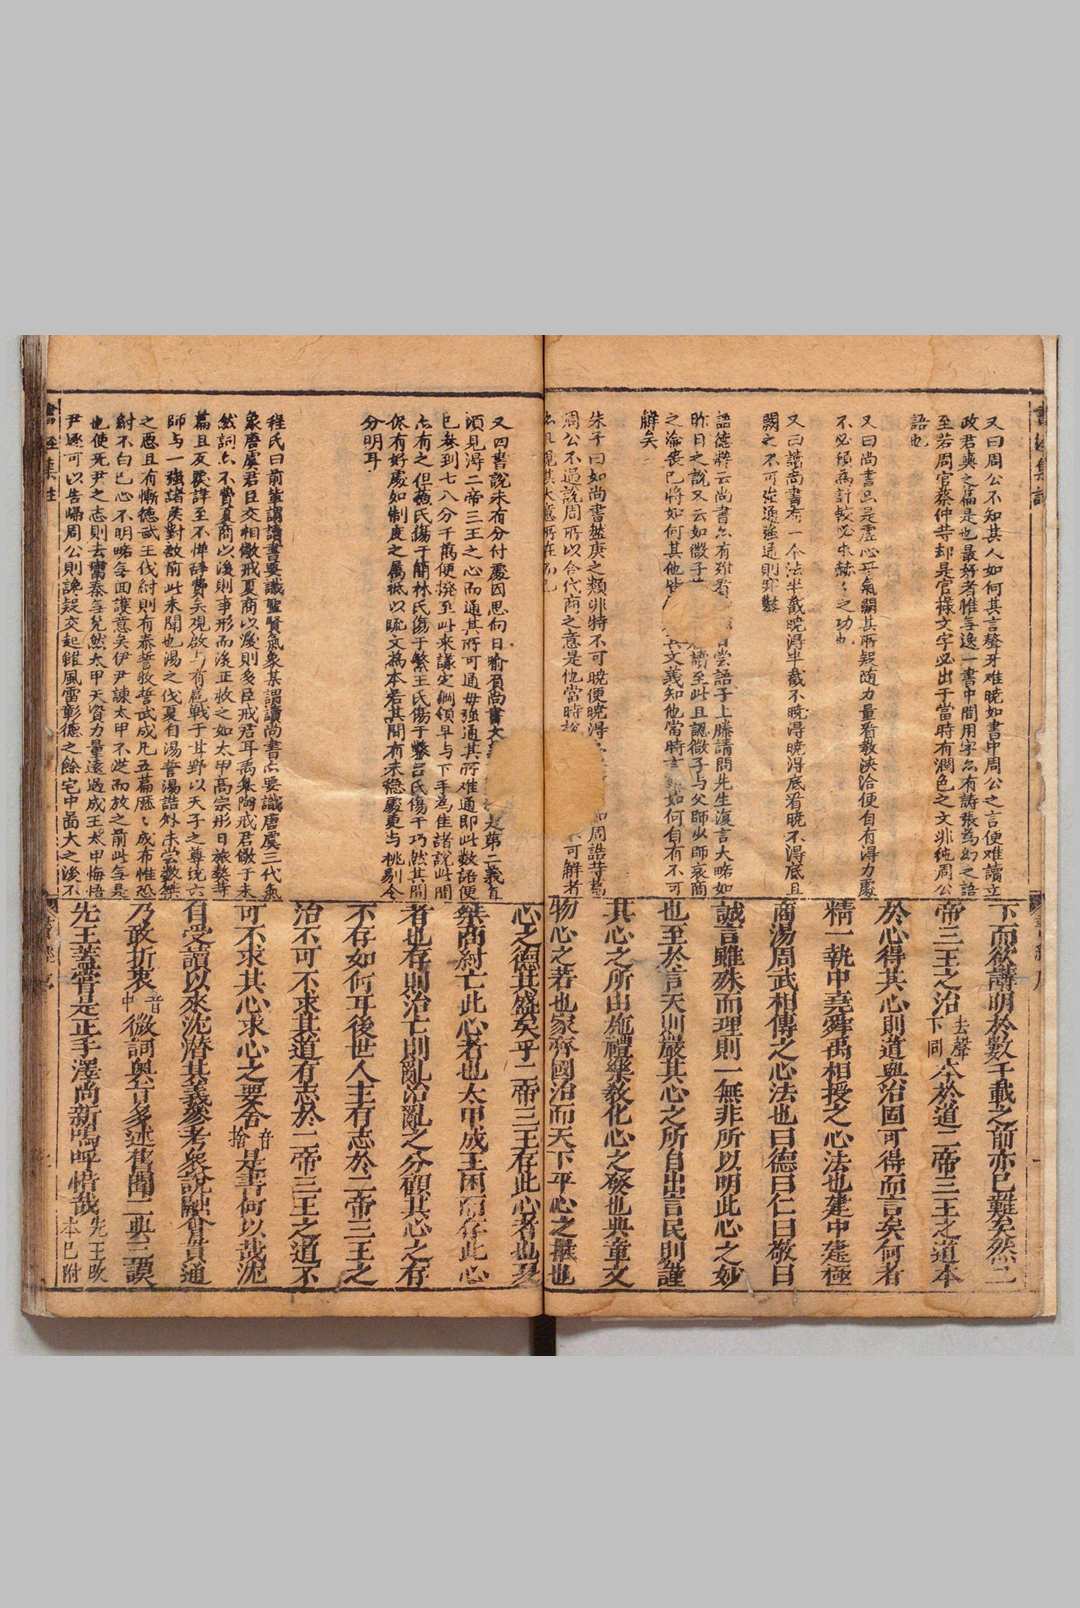 書經集註
又曰周公不知其人如何其言聱牙难曉如書中周公之言便难讀立
政君奭之篇是也最好者惟无逸一書中間用字亦有譸張為幻之語
至若周官蔡仲等却是官樣文字必出于當時有潤色之文非純周公
語也
又曰尚書只是虛心平氣闕其所疑随力量看教浹洽便自有得力處
不必須為計較必求赫赫之功也
又曰讀尚書有一个法半截曉得半截不曉得曉得底看曉不得底且
闕之不可强通强通則穿鑿
語德粹云尚書亦有难看
昨日之說又云如微子
之淪丧已將如何其他皆
解矣
嘗語子上滕請問先生復言大略如
讀至此且認微子与父師少師哀商
其文義知他當時言語如何自有不可
朱子曰如尚書盤庚之類非特不可曉便曉得
周公不過說周所以合代商之意是他當時
如周誥等篇
不可解者
書經序
下而欲講明於數千載之前亦已難矣然二
帝三王之治去聲下同本於道二帝三王之道本
於心得其心則道與治固可得而言矣何者
精一執中堯舜禹相授之心法也建中建極
商湯周武相傳之心法也曰德曰仁曰敬曰
誠言雖殊而理則一無非所以明此心之妙
也至於言天則嚴其心之所自出言民則謹
其心之所由施禮樂教化心之發也典章文
物心之著也家齊國治而天下平心之推也
又曰書說未有分付處因思向日喻有尚書文義
是第二義直
須見得二帝三王之心而通其所可通毋强通其所难通即此數語便
已參到七八分千萬便撥至此來議定綱領早与下手為佳諸說此間
亦有之但蘇氏傷于簡林氏傷于繁王氏傷于鑿吕氏傷于巧然其間
侭有好處如制度之属祗以疏文為本若其間有未穩處更与挑剔令
分明耳
程氏曰前輩謂讀書要識聖賢氣象某謂讀尚書亦要識唐虞三代氣
象唐虞君臣交相儆戒夏商以後則多臣戒君耳禹皋陶戒君儆于未
然詞亦不費夏商以後則事形而後正救之如太甲高宗肜日旅獒等
篇且反覆諄至不惮辞費矣觀啟与有扈戰于甘野以天子之尊统六
師与一强諸侯對敵前此未聞也湯之伐夏有湯誓湯誥外未尝數桀
之惡且有慚德武王伐紂則有泰誓牧誓武成凡五篇歷歷成布惟恐
紂不白己心不明略无回護意矣伊尹諫太甲不從而放之前此无是
也使死尹之志則去寗泰无㡬然太甲天資力量遠過成王太甲悔悟
尹遂可以告歸周公則讒疑交起雖風雷彰德之餘宅中啚大之後不
心之德其盛矣乎二帝三王存此心者也夏
桀商紂亡此心者也太甲成王困而存此心
者也存則治亡則亂治亂之分顧其心之存
不存如何耳後世人主有志於二帝三王之
治不可不求其道有志於二帝三王之道不
可不求其心求心之要舍音捨是書何以哉沈
自受讀以來沈潛其義參考衆說融會貫通
乃敢折衷音中微詞奧旨多述舊聞二典三謨
先王蓋嘗是正手澤尚新嗚呼惜哉先王改本已附
書經集註